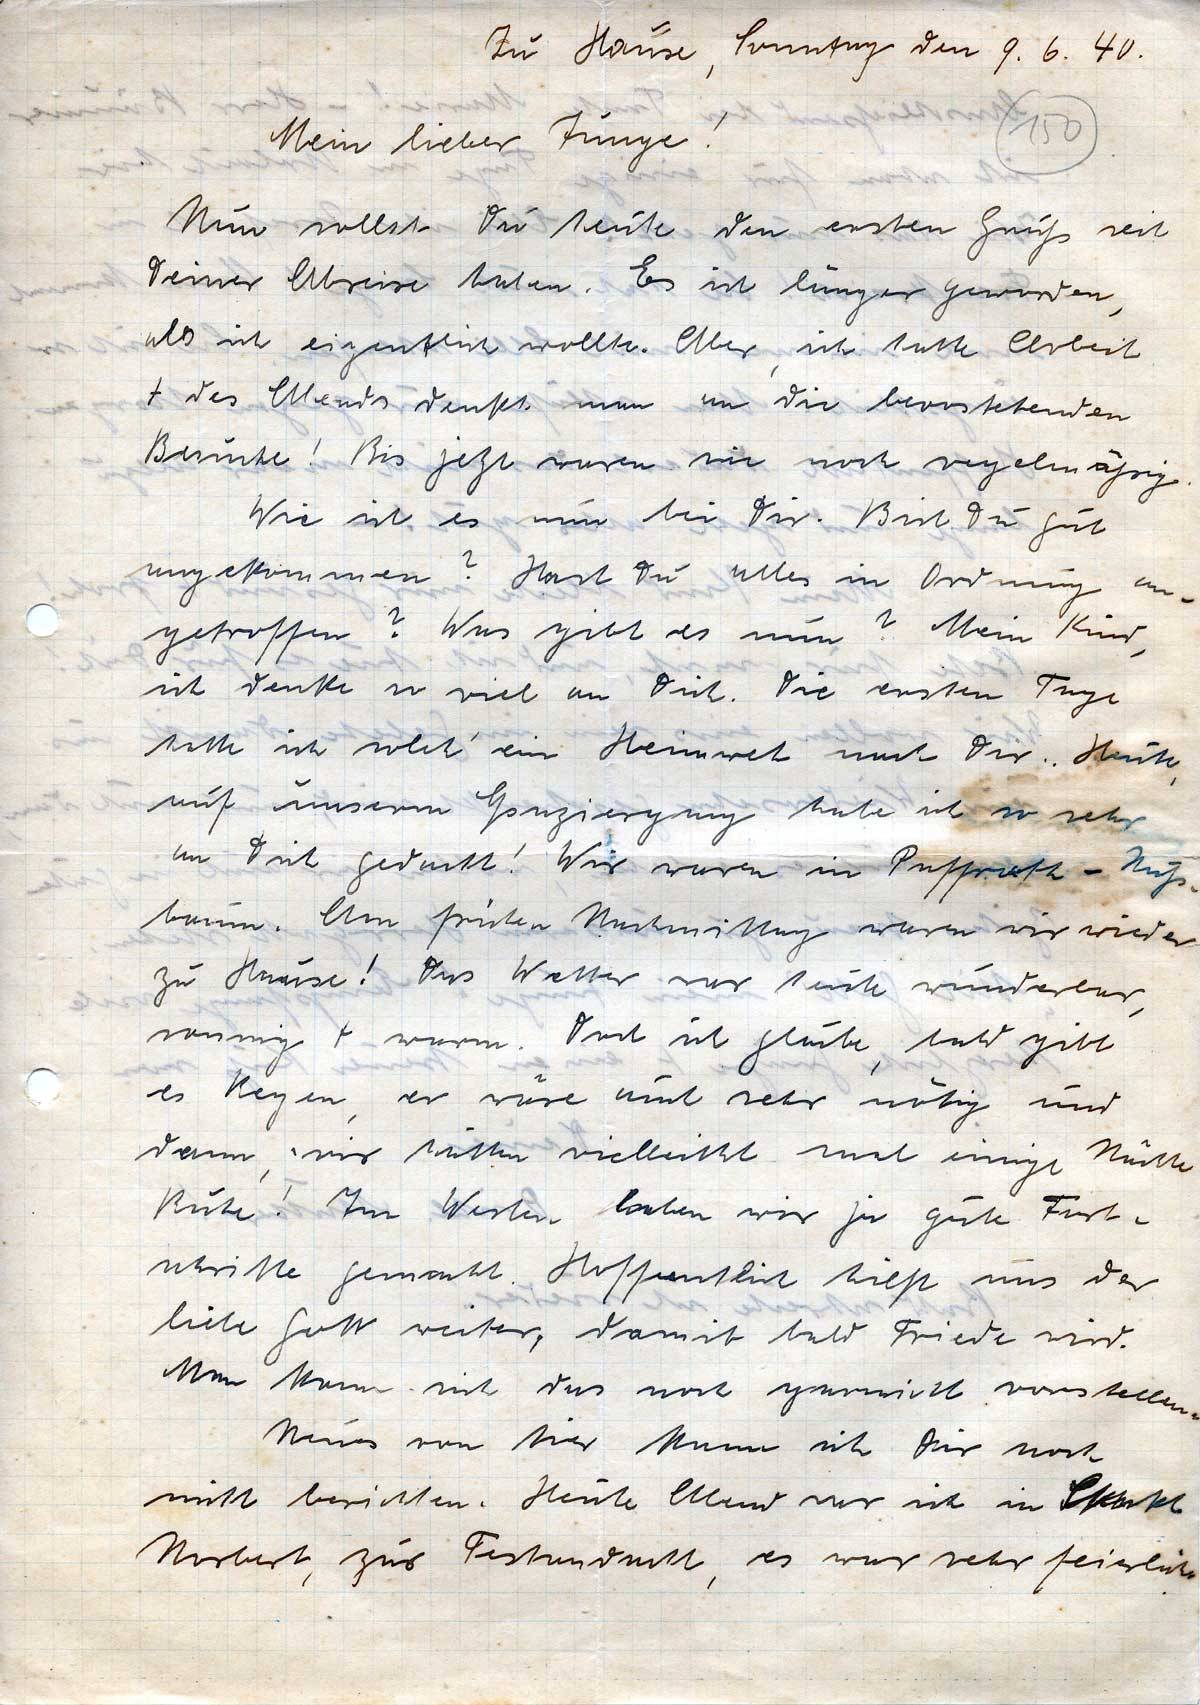 Zu Hause, Sonntag den 9. 6. 40.
150
Mein lieber Junge!
Nun sollst Du heute den ersten Gruß seit
Deiner Abreise haben. Es ist länger geworden,
als ich eigentlich wollte. Aber, ich hatte Arbeit
+ des Abends denkt man an die bevorstehenden
Besuche! Bis jetzt waren sie noch regelmäßig.
Wie ist es nun bei Dir. Bist Du gut
angekommen? Hast Du alles in Ordnung an-
getroffen? Was gibt es nun? Mein Kind,
ich denke so viel an Dich. Die ersten Tage
hatte ich solch' ein Heimweh nach Dir.. Heute,
auf unserem Spaziergang habe ich so sehr
an Dich gedacht! Wir waren in Paffrath - Nuß-
baum. Am frühen Nachmittag waren wir wieder
zu Hause! Das Wetter war heute wunderbar,
sonnig + warm. Doch ich glaube, bald gibt
es Regen, er wäre auch sehr nötig und
dann, wir hätten vielleicht mal einige Nächte
Ruhe! Im Westen haben wir ja gute Fort-
schritte gemacht. Hoffentlich hilft uns der
liebe Gott weiter, damit bald Friede wird.
Man kann sich das noch garnicht vorstellen.
Neues von hier kann ich Dir noch
nicht berichten. Heute Abend war ich in Sankt
Norbert, zur Festandacht, es war sehr feierlich.